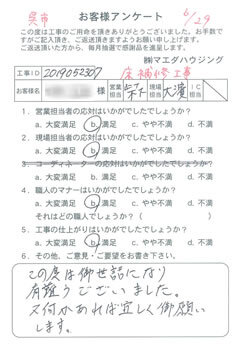 呉市
6/29
お客様アンケート
この度は工事のご用命を頂きありがとうございました。お手数で
すがご記入頂き、ご返送頂きますようお願い申し上げます。
ご返送頂いた方から、毎月抽選で感謝品を進呈します。
㈱マエダハウジング
工事ID 2019052307 床補修工事
お客様名 様 営業担当 現場担当 大濱 IC担当
1. 営業担当者の応対はいかがでしたでしょうか?
a. 大変満足 b. 満足 c. やや不満 d. 不満
2. 現場担当者の応対はいかがでしたでしょうか?
a. 大変満足 b. 満足 c. やや不満 d. 不満
3. コーディネーターの応対はいかがでしたでしょうか?
a. 大変満足 b. 満足 c. やや不満 d. 不満
4. 職人のマナーはいかがでしたでしょうか?
a. 大変満足 b. 満足 c. やや不満 d. 不満
それはどの職人でしょうか?( )
5. 工事の仕上がりはいかがでしたでしょうか?
a. 大変満足 b. 満足 c. やや不満 d. 不満
6. その他、ご意見・ご要望をお書き下さい。
この度は御世話になり
有難うございました。
又何かあれば宜しく御願い
します。